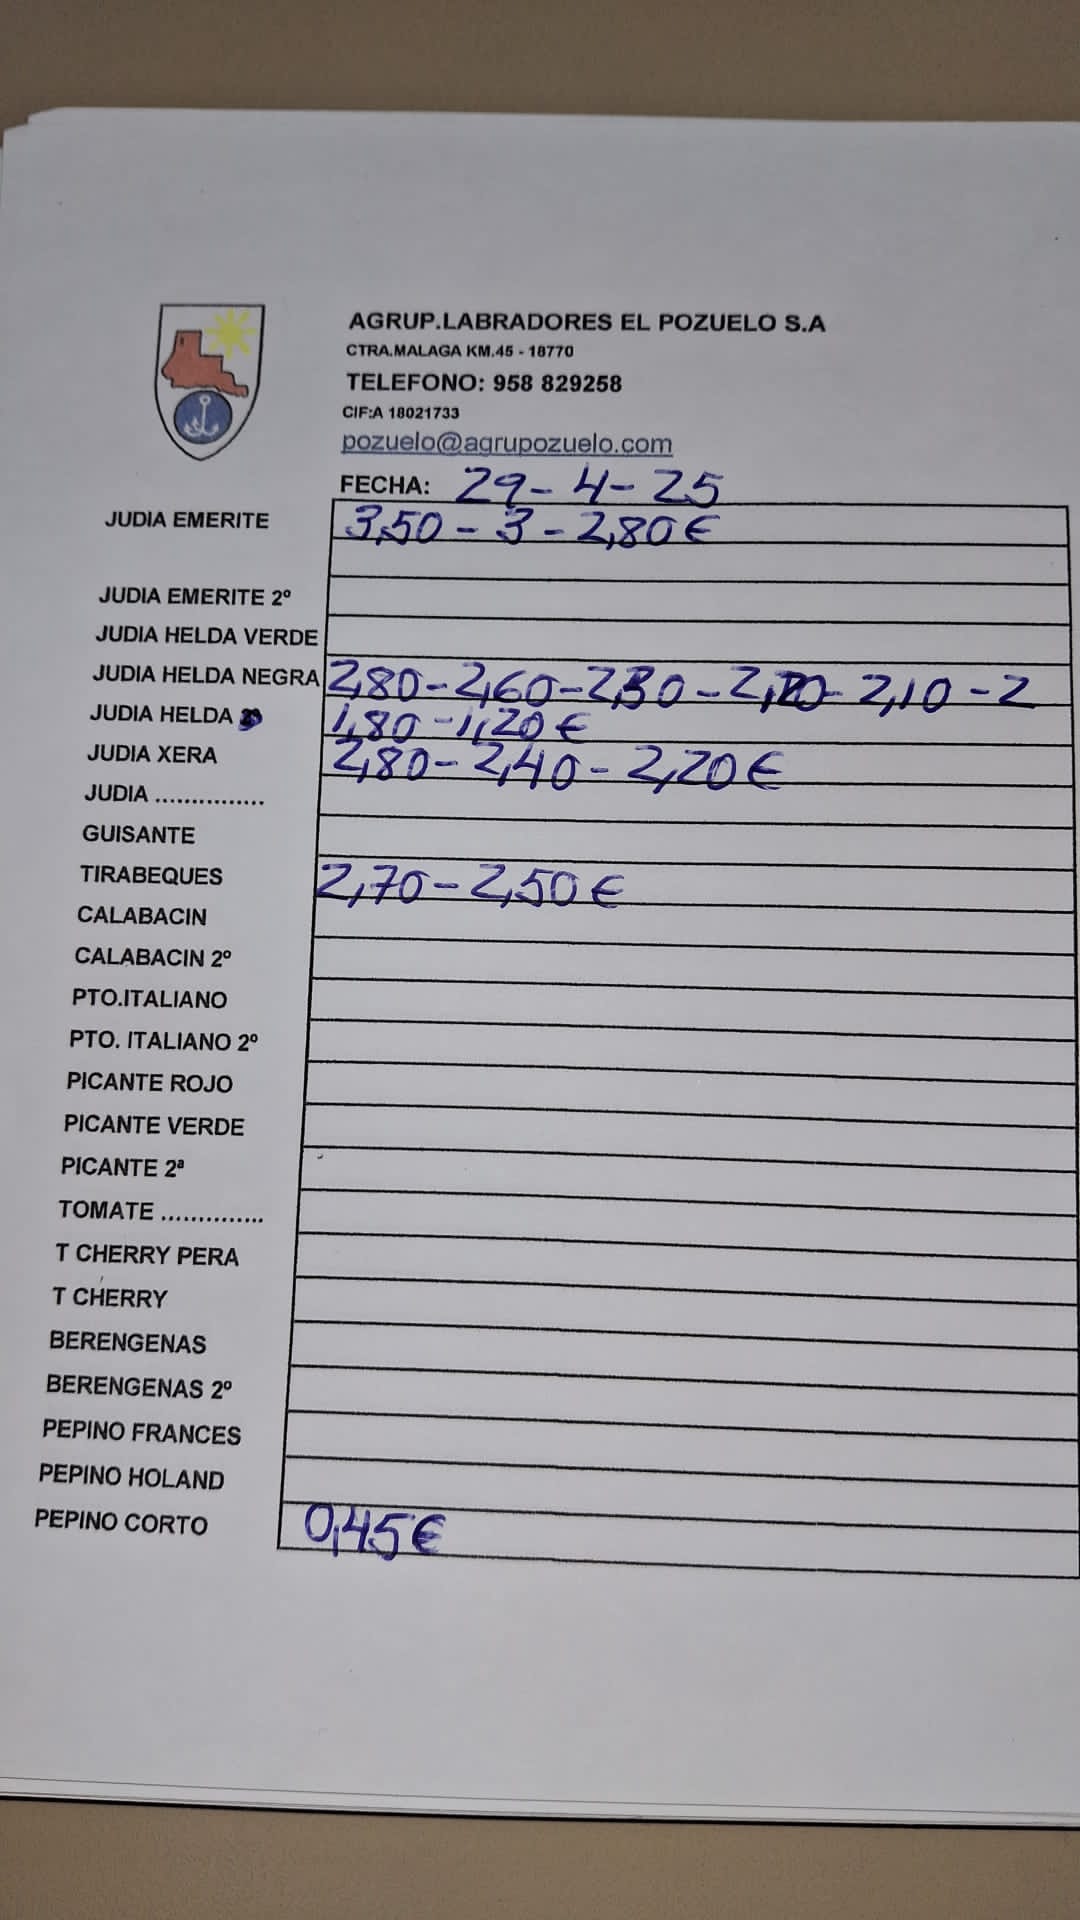 AGRUP.LABRADORES EL POZUELO S.A
CTRA.MALAGA KM.45 - 18770
TELEFONO: 958 829258
CIF:A 18021733
pozuelo@agrupozuelo.com
FECHA: 29-4-25
JUDIA EMERITE 3,50-3-2,80€
JUDIA EMERITE 2º
JUDIA HELDA VERDE
JUDIA HELDA NEGRA 2,80-2,60-2,30-2,20-2,10-2
JUDIA HELDA 1,80-1,20€
JUDIA XERA 2,80-2,40-2,20€
JUDIA ...............
GUISANTE
TIRABEQUES 2,70-2,50€
CALABACIN
CALABACIN 2º
PTO.ITALIANO
PTO. ITALIANO 2º
PICANTE ROJO
PICANTE VERDE
PICANTE 2ª
TOMATE ..............
T CHERRY PERA
T CHERRY
BERENGENAS
BERENGENAS 2º
PEPINO FRANCES
PEPINO HOLAND
PEPINO CORTO 0,45€